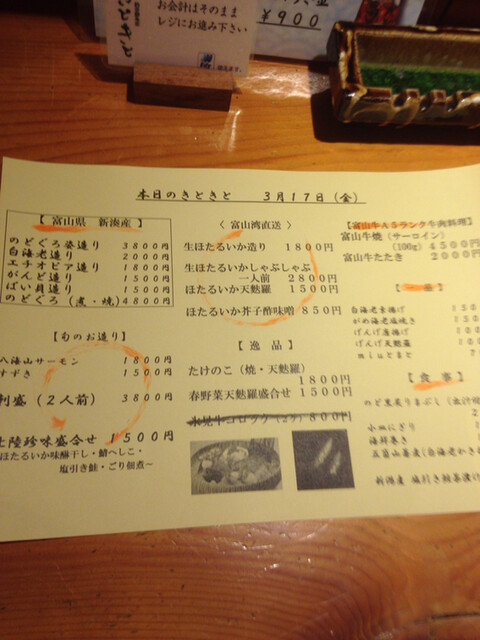 お会計はそのまま
レジにお進み下さい
¥900
本日のきときと 3月17日(金)
【富山県 新湊産】
のどぐろ姿造り 3800円
白海老造り 2000円
エチオピア造り 1800円
がんど造り 1500円
ばい貝造り 1500円
のどぐろ(煮・焼)4800円
【旬のお造り】
八海山サーモン 1800円
すずき 1500円
利盛(2人前) 3800円
北陸珍味盛合せ 1500円
ほたるいか味醂干し・鯖へしこ・
塩引き鮭・ごり佃煮~
〈富山湾直送〉
生ほたるいか造り 1800円
生ほたるいかしゃぶしゃぶ
一人前 2800円
ほたるいか天麩羅 1500円
ほたるいか芥子酢味噌 850円
【逸品】
たけのこ(焼・天麩羅)
1800円
春野菜天麩羅盛合せ 1500円
氷見牛コロッケ(2ケ)800円
【富山牛A5ランク牛肉料理】
富山牛焼(サーロイン)
(100g) 4500円
富山牛たたき 2000円
白海老素揚げ 150
がめ海老塩焼き 150
げんげ唐揚げ 100
げんげ天麩羅
【食事】
のど黒炙りまぶし(出汁
小皿にぎり
海鮮巻き
五箇山蕎麦(白海老かき
新潟産 塩引き鮭茶漬け